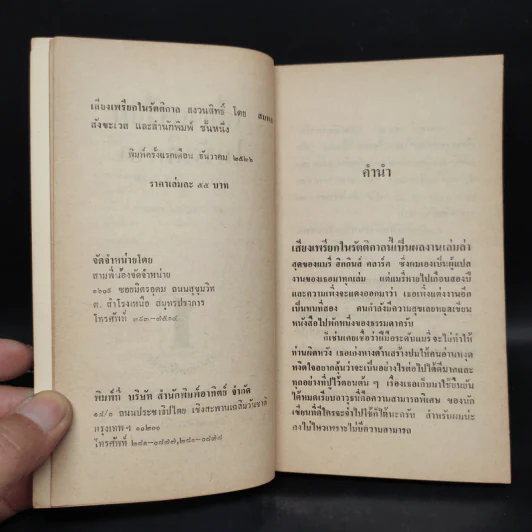 เสียงเพรียกในรัตติกาล สงวนสิทธิ์ โดย สมพล
สังขะเวส และสำนักพิมพ์ ชั้นหนึ่ง
พิมพ์ครั้งแรกเดือน ธันวาคม ๒๕๒๖
ราคาเล่มละ ๔๕ บาท
จัดจำหน่ายโดย
สามพี่น้องจัดจำหน่าย
๑๒๑๕ ซอยมิตรอุดม ถนนสุขุมวิท
ต. สำโรงเหนือ สมุทรปราการ
โทรศัพท์ ๓๙๓-๗๕๐๔
พิมพ์ที่ บริษัท สำนักพิมพ์อาทิตย์ จำกัด
๑๔/๑ ถนนประชาธิปไตย เชิงสะพานเฉลิมวันชาติ
กรุงเทพฯ ๑๐๒๐๐
โทรศัพท์ ๒๘๑-๐๘๗๗,๒๘๑-๐๘๗๘
คำนำ
เสียงเพรียกในรัตติกาลนี้เป็นผลงานเล่มล่า
สุดของแมรี่ ฮิกกินส์ คลาร์ค ซึ่งผมเองเป็นผู้แปล
งานของเธอมาทุกเล่ม แต่แมรี่หายไปเกือบสองปี
และความเพิ่งจะแดงออกมาว่า เธอเพิ่งแต่งงานอีก
เป็นหนที่สอง คนกำลังมีความสุขเลยหยุดเขียน
หนังสือไปพักหนึ่งของธรรมดาครับ
ก็เช่นเคยเชื่อว่าฝีมือระดับแมรี่ จะไม่ทำให้
ท่านผิดหวัง เธอเก่งทางด้านสร้างปมให้คนอ่านหงุด
หงิดใจอยากลุ้นว่าจะเป็นอย่างไรต่อไปได้ดีมากและ
ทุกอย่างที่ปูไว้ตอนต้น ๆ เรื่องเธอเก็บมาใช้กินไป
ได้หมดเรียบอาวุธนี่คือความสามารถพิเศษ ของนัก
เขียนที่ดีใครจะจำไปใช้ก็ได้นะครับ สำหรับผมน่ะ
คงไม่ไหวเพราะไม่มีความสามารถ